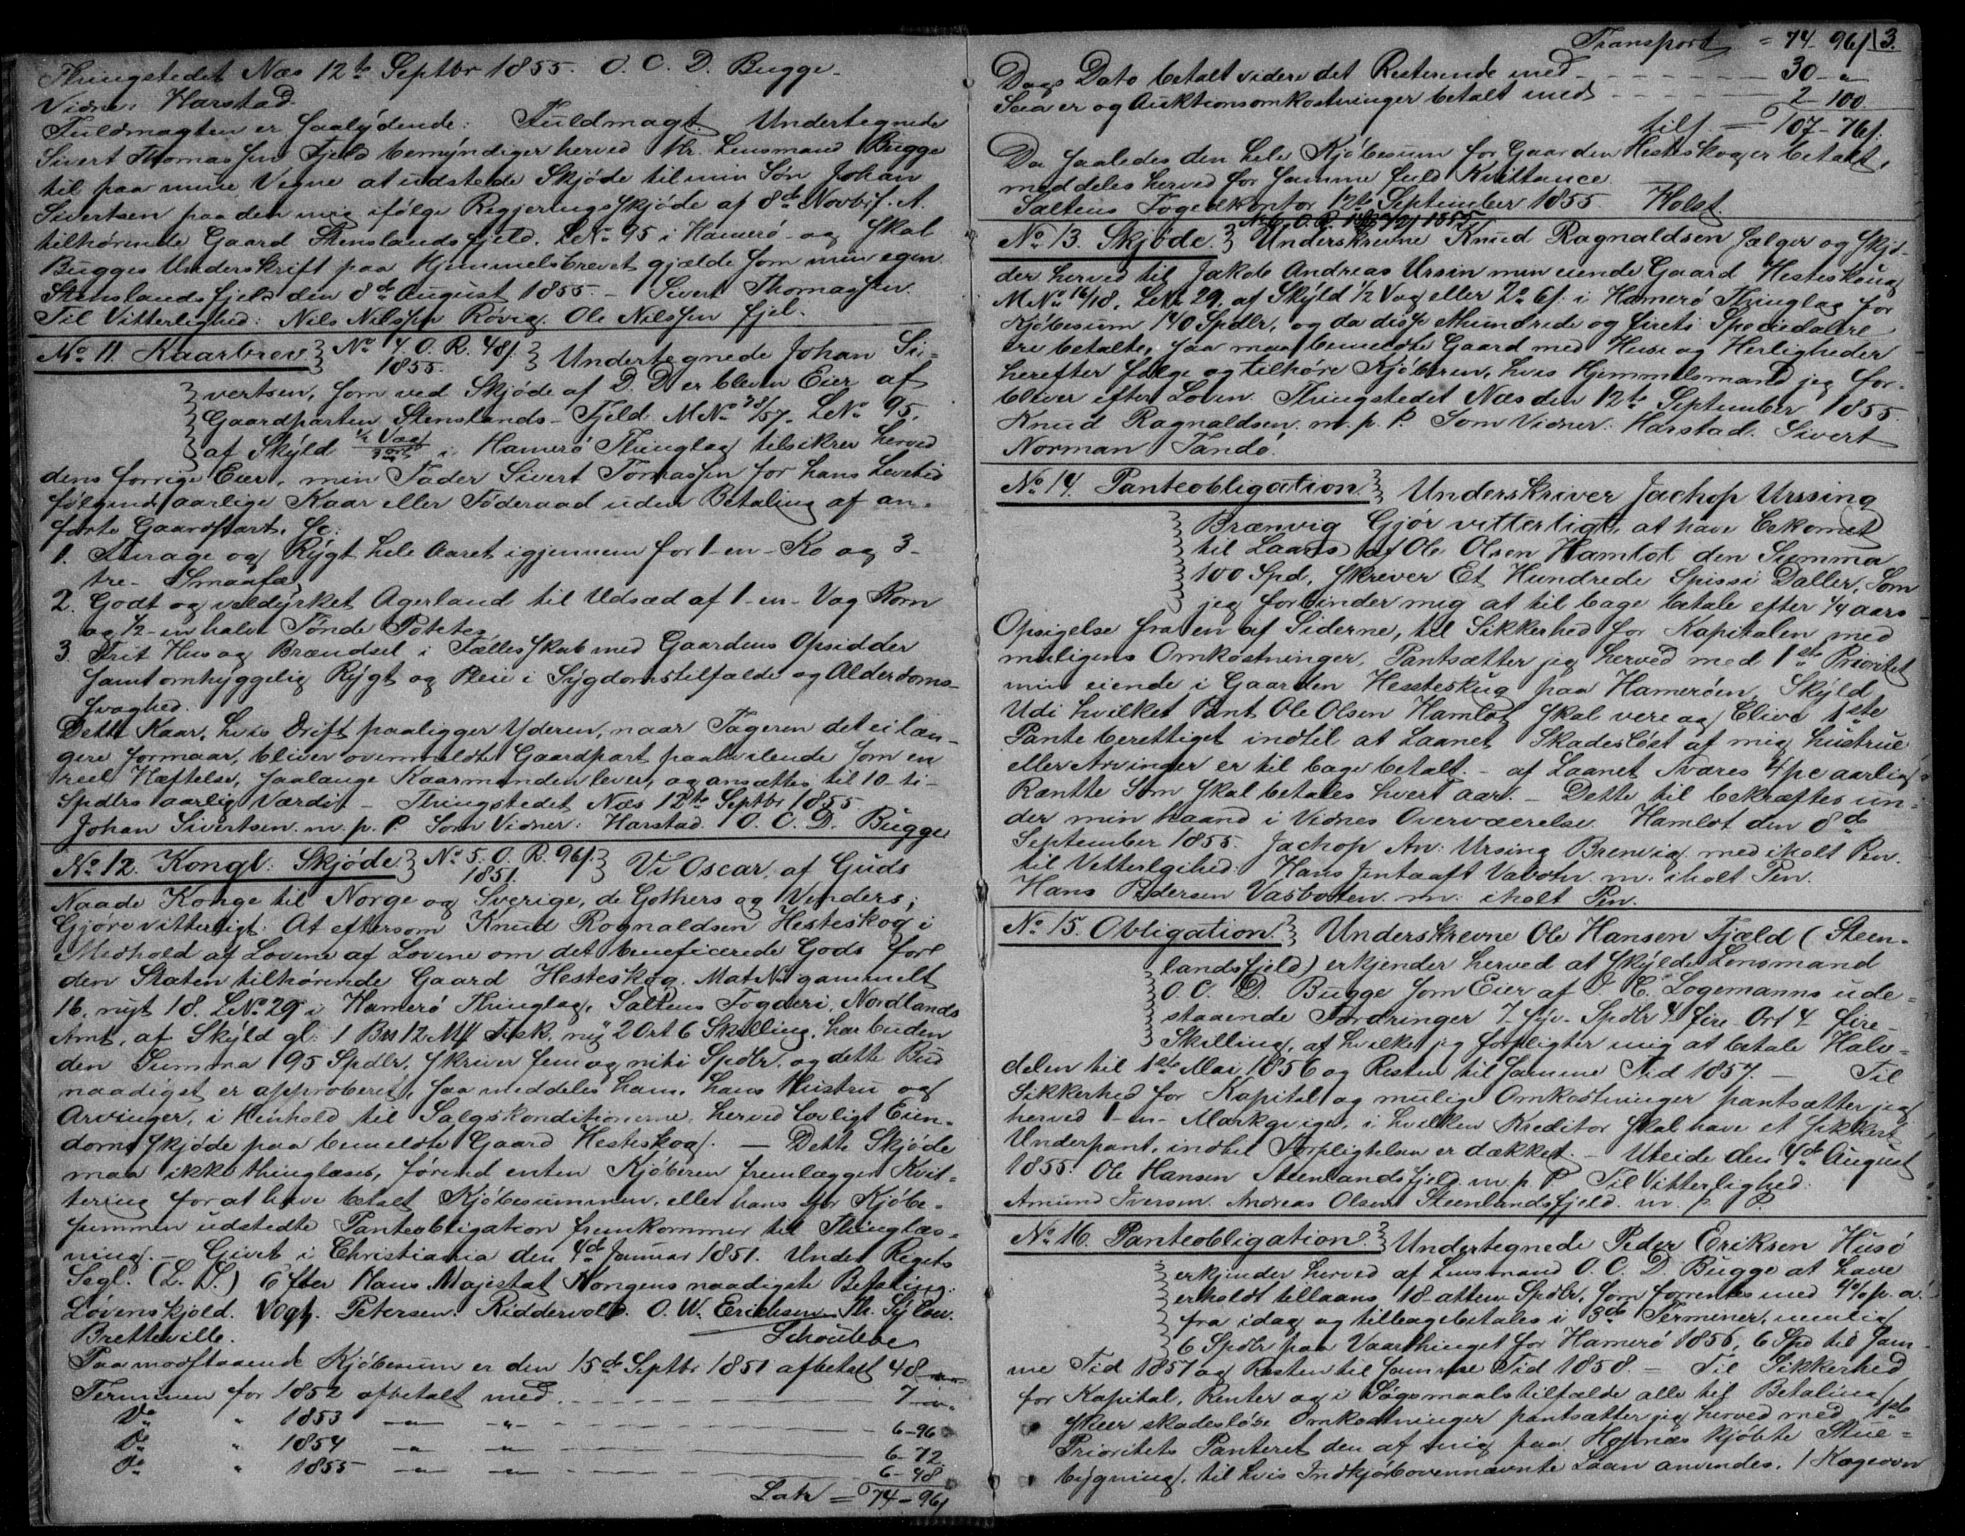 Thingstedet Næs 12te Septbr 1855. O. C. D. Bugge.
Vidne: Harstad.
Fuldmagten er saalydende: Fuldmagt. Undertegnede
Sivert Thomassen Fjeld bemyndiger herved Hr. Lensmand Bugge
til paa mine Vegne at udstede Skjøde til min Søn Johan
Sivertsen paa den mig ifølge Regjeringsskjøde af 8de Novbr f. A.
tilhørende Gaard Stenslandsfjeld. LNo 95 i Hamerø og skal
Bugges Underskrift paa Hjemmelsbrevet gjælde som min egen.
Stenslandsfjeld den 8de August 1855. – Sivert Thomassen.
Til Vitterlighed: Nils Nilssen Røvig. Ole Nilssen Fjel.
No 11. Kaarbrev. } No 4. O. R. 48 s. 1855. } Undertegnede Johan Si-
vertsen, som ved Skjøde af D. D. er bleven Eier af
Gaardparten Stenslands-Fjeld MNo 38/57. LNo 95.
af Skyld ½ Vog i Hamerø Thinglag tilsikrer herved
dens forrige Eier, min Fader Sivert Tomassen for hans Levetid
følgende aarlige Kaar eller Føderaad uden Betaling af an-
førte Gaardpart, sc:
1. Furage og Røgt hele Aaret igjennem for 1-en-Ko og 3-
tre- Smaafæ.
2. Godt og veldyrket Agerland til Udsæd af 1-en-Vog Korn
og ½-en halv Tønde Poteter.
3. Frit Hus og Brændsel i Fællesskab med Gaardens Opsidder
samt omhyggelig Røgt og Pleie i Sygdomstilfælde og Alderdoms-
svaghed.
Dette Kaar, hvis Drift paaligger Yderen, naar Tageren det ei læn-
gere formaar, bliver ovenmeldte Gaardpart paahvilende som en
reel Hæftelse, saalænge Kaarmanden lever, og ansættes til 10-ti-
Spdlrs aarlig Værdi. – Thingstedet Næs 12te Septbr 1855.
Johan Sivertsen. m. p. P. Som Vidner: Harstad. O. C. D. Bugge
No 12. Kongl: Skjøde } No 5. O. R. 96 s. 1851. } Vi Oscar, af Guds
Naade Konge til Norge og Sverige, de Gothers og Venders;
Gjøre vitterligt: At eftersom Knud Rognaldsen Hesteskog i
Medhold af Lovene af Lovene om det beneficerede Gods for
den Staten tilhørende Gaard Hesteskog, Mat No gammelt
16, nyt 18. LNo 29 i Hamerø Thinglag, Saltens Fogderi, Nordlands
Amt, af Skyld gl: 1 Bs 12 Mk Fisk, ny 2 Ort 6 Skilling, har buden
den Summa 195 Spdlr, skriver fem og niti Spdlr. og dette Bud
naadigst er approberet, saa meddeles ham, hans Hustru og
Arvinger, i Henhold til Salgskonditionerne, herved lovligt Eien-
domsskjøde paa bemeldte Gaard Hesteskog. – Dette Skjøde
maa ikke thinglæses, førend enten Kjøberen fremlægger Kvit-
tering for at have betalt Kjøbesummen, eller hans for Kjøbe-
summen udstedte Panteobligation fremkommer til Thinglæs-
ning. – Givet i Christiania den 4de Januar 1851. Under Rigets
Segl. (L. S.) Efter Hans Majestæt Kongens naadigste Befaling.
Løvenskjold. Vogt. Petersen. Riddervold. O. W. Erichsen.
Bretteville. Schoubøe
Paa modstaaende Kjøbesum er den 15de Septbr 1851 afbetalt 48 –
Terminen for 1852 afbetalt med 7 –
Do " 1853 – " – " – 6–96
Do " 1854 – " – " – 6–72
Do " 1855 – " – " – 6–48
Latr = 74–96 s
3.
Transport = 74–96 s
Dags Dato betalt videre det Resterende med – 30 – "
Saa er og Auktionsomkostninger betalt med – 2–100
tils. = 107–76 s.
Da saaledes den hele Kjøbesum for Gaarden Hesteskog er betalt,
meddeles herved for samme fuld Kvittance.
Saltens Fogedkontor 12te September 1855. Holst.
No 13. Skjøde. } Underskrevne Knud Ragnaldsen sælger og skjø-
der herved til Jakob Andreas Ursin min eiende Gaard Hesteskoug
MNo 16/18. LNo 29, af Skyld ½ Vog eller 2 o 6 s. i Hamerø Thinglag for
Kjøbesum 140 Spdlr, og da disse Ethundrede og fireti Speciedalere
ere betalte, saa maa bemeldte Gaard med Huse og Herligheder
herefter følge og tilhøre Kjøberen, hvis Hjemmelsmand jeg for-
bliver efter Loven. Thingstedet Næs den 12te September 1855.
Knud Ragnaldsen m. p. P. Som Vidner: Harstad. Sivert
Norman Tandø.
No 14. Panteobligation } Underskriver Jachop Urssing
Brænvig Gjør vitterligt, at have bekomet
til Laans af Ole Olsen Hamlot den Summa
100 Spd, skrever Et Hundrede Spissi Daller, Som
jeg forbinder mig at til bage betale efter ¼ aars
Opsigelse fra en af Siderne, til Sikkerhed for Kapitalen med
muligens Omkostninger, Pantsætter jeg herved med 1ste Prioritet
min eiende i Gaarden Hessteskug paa Hamerøen, Skyld
Udi hvilket Pant Ole Olsen Hamlot skal vere og blive 1ste
Pante berettiget indtil at Laanet Skadesløst af mig hustrue
eller Arvinger er til bage betalt – af Laanet svares 4 pc aarlig
Ræntte Som skal betales hvert aar. – Dette til bekræftes un-
der min haand i Vidnes Overværelse. Hamlot den 8de
September 1855. Jachop An: Ursing Brenvig med iholt Pen.
til Vetterlgihed: Hans Jentaaft m. iholt Pen.
Hans Pedersen Vasbotten. m. iholt Pen.
No 15. Obligation. } Underskrevne Ole Hansen Fjæld (Steen-
landsfjeld) erkjender herved at skylde Lensmand
O. C. D. Bugge som Eier af J. C. Logemanns ude-
staaende Fordringer 7 syv- Spdlr 4 fire- Ort 4 fire-
Skilling, af hvilke jeg forpligter mig at betale Halv-
delen til 1ste Mai 1856 og Resten til samme Tid 1857. – Til
Sikkerhed for Kapital og mulige Omkostninger pantsætter jeg
herved 1-en- Markqvige, i hvilken Kreditor skal have et sikkert
Underpant, indtil Forpligtelsen er dækket. – Uteide den 4de August
1855. Ole Hansen Steenlandsfjeld m. p. P. Til Vitterlighed:
Amund Iversen. Andreas Olsen Steenlandsfjeld. m. p. P.
No 16. Panteobligation. } Undertegnede Peder Eriksen Husø
erkjender herved af Lensmand O. C. D. Bugge at have
erholdt tillaans 18 atten Spdlr, som forrentes med 4% p. a.
fra idag og tilbagebetales i 3de Terminer, nemlig
6 Spdlr paa Vaarthinget for Hamerø 1856, 6 Spd til sam-
me Tid 1857 og Resten til samme Tid 1858. – Til Sikkerhed
for Kapital, Renter og i Søgsmaalstilfælde alle til Betaling
skeer skadesløse Omkostninger pantsætter jeg herved med 1ste
Prioritets Panteret den af mig paa Hopnæs kjøbte Stue-
bygning, til hvis Indkjøb ovennævnte Laan anvendes, 1 Kogeovn